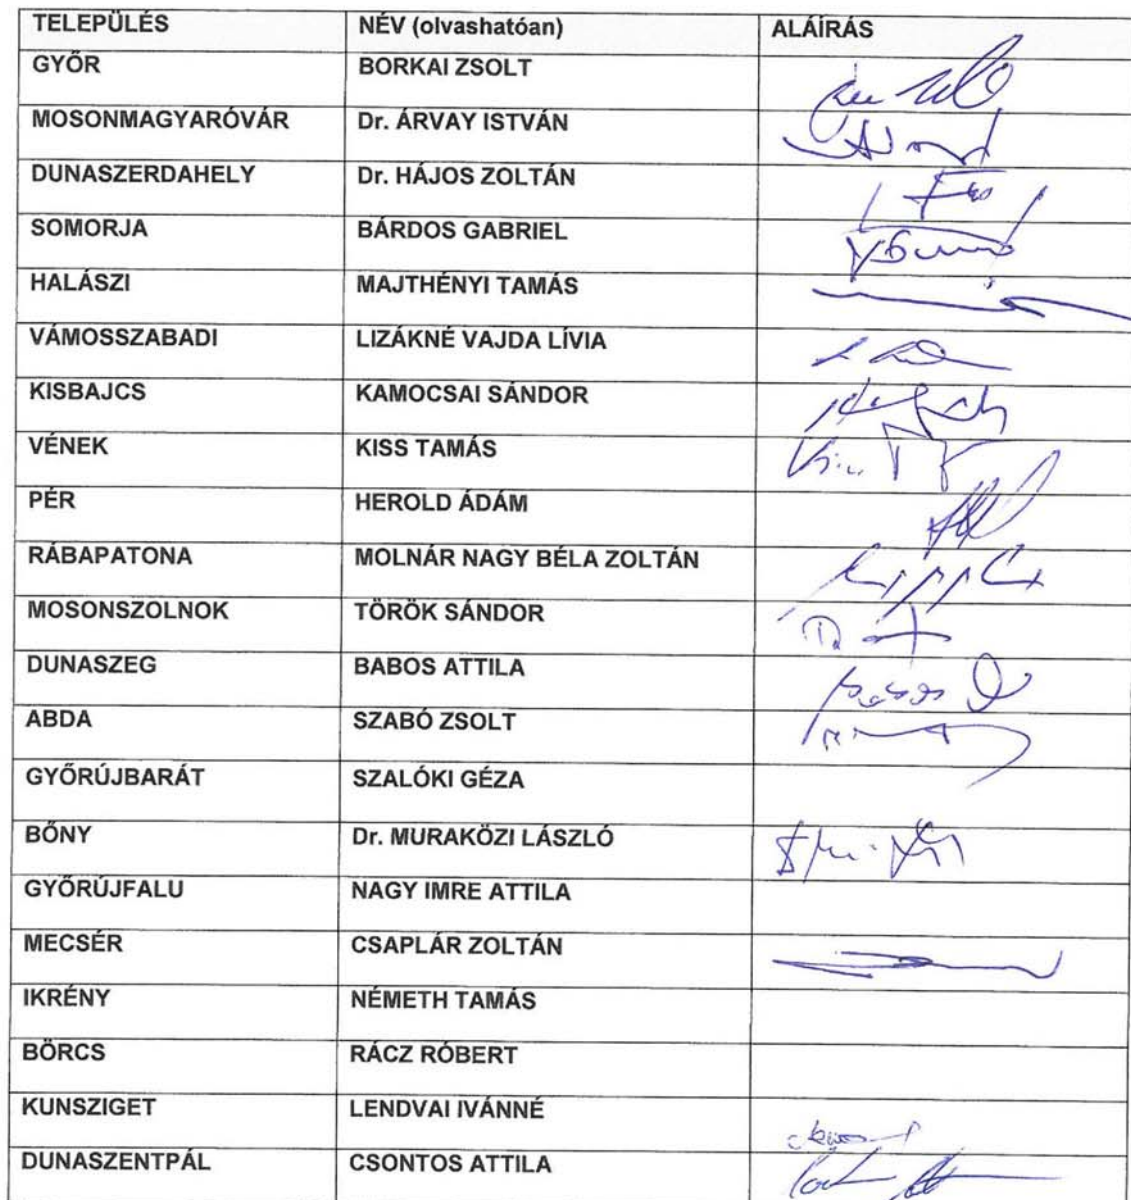 TELEPÜLÉS NÉV (olvashatóan) ALÁÍRÁS
GYŐR BORKAI ZSOLT
MOSONMAGYARÓVÁR Dr. ÁRVAY ISTVÁN
DUNASZERDAHELY Dr. HÁJOS ZOLTÁN
SOMORJA BÁRDOS GABRIEL
HALÁSZI MAJTHÉNYI TAMÁS
VÁMOSSZABADI LIZÁKNÉ VAJDA LÍVIA
KISBAJCS KAMOCSAI SÁNDOR
VÉNEK KISS TAMÁS
PÉR HEROLD ÁDÁM
RÁBAPATONA MOLNÁR NAGY BÉLA ZOLTÁN
MOSONSZOLNOK TÖRÖK SÁNDOR
DUNASZEG BABOS ATTILA
ABDA SZABÓ ZSOLT
GYŐRÚJBARÁT SZALÓKI GÉZA
BŐNY Dr. MURAKÖZI LÁSZLÓ
GYŐRÚJFALU NAGY IMRE ATTILA
MECSÉR CSAPLÁR ZOLTÁN
IKRÉNY NÉMETH TAMÁS
BÖRCS RÁCZ RÓBERT
KUNSZIGET LENDVAI IVÁNNÉ
DUNASZENTPÁL CSONTOS ATTILA